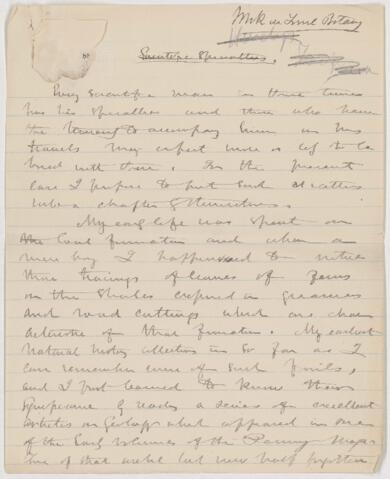 Work in Local Botany
Scientific Specialties.
Every scientific man in these times
has his specialties and those who have
the to accompany him in his
travels may expect more or less to be
bored with them. In the present
case I propose to put such matters
into a chapter themselves.
My early life was spent on
the Coal formation and when a
mere boy I happened to notice
the tracings of leaves of ferns
on the Shales exposed in quarries
and road cuttings which are char
acteristic of that formation. My earliest
Natural History collections in so far as I
can remember were of such fossils,
and I first learned to know their
significance by reading a series of excellent
articles on Geology which appeared in one
of the Early volumes of the Penny Maga
zine of that useful but now half forgotten